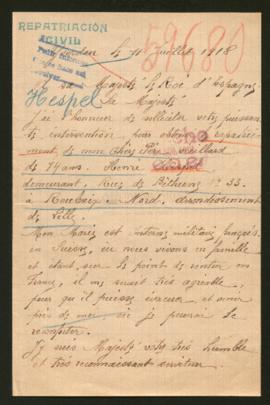 REPATRIACIÓN
CIVIL
le 11 Juillet 1918
59680
A sa Majesté le Roi d'Espagne
Hespel
Sa Majesté
J'ai l'honneur de solliciter votre puissante
intervention pour obtenir
de mon cher Père vieillard
de 74 ans. Henri
demeurant Rue de Béthune N° 33.
à Nord, arrondissement
de Lille.
Mon Mari est interné militaire français
en Suisse, où nous vivons en famille
et étant sur le point de rentrer en
France, il me serait très agréable,
pour qu'il puisse évacuer et venir
près de moi où je pourrai le
Je suis Majesté votre très humble
et très reconnaissant serviteur